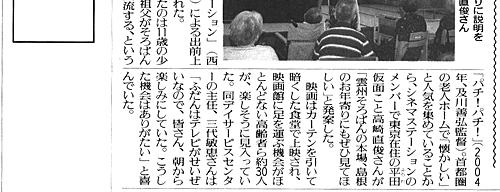 りに説明を
直俊さん
ーション」（西
）による出前上
れた。
たのは11歳の少
祖父がそろばん
流する、という
『パチ！パチ！』（2004
年、及川善弘監督）。首都圏
の老人ホームで「懐かしい」
と人気を集めていることか
ら、シネマステーションの
メンバーで東京在住の平田
仮面こと高崎直俊さんが
「雲州そろばんの本場、島根
のお年寄りにもぜひ見てほ
しい」と発案した。
映画はカーテンを引いて
暗くした食堂で上映され、
映画館に足を運ぶ機会がほ
とんどない高齢者ら約30人
が、楽しそうに見入ってい
た。同デイサービスセンタ
ーの主任、三代敏恵さんは
「ふだんはテレビがせいぜ
いなので、皆さん、朝から
楽しみにしていた。こうし
た機会はありがたい」と喜
んでいた。